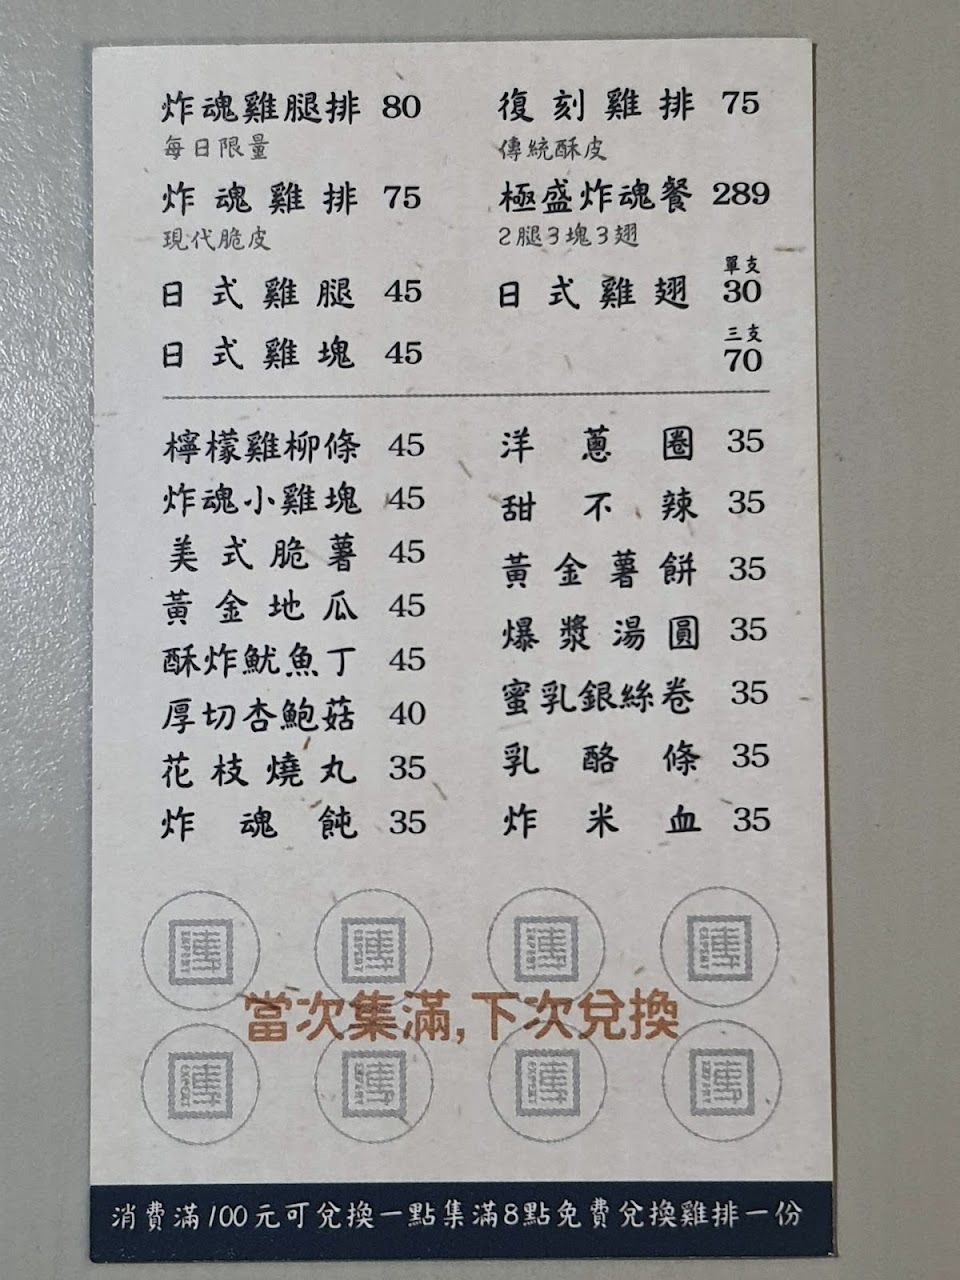 炸魂雞腿排 80
每日限量
炸魂雞排 75
現代脆皮
日式雞腿 45
日式雞塊 45
復刻雞排 75
傳統酥皮
極盛炸魂餐 289
2腿3塊3翅
單支
日式雞翅 30
三支
70
檸檬雞柳條 45
炸魂小雞塊 45
美式脆薯 45
黃金地瓜 45
酥炸魷魚丁 45
厚切杏鮑菇 40
花枝燒丸 35
炸魂飩 35
洋蔥圈 35
甜不辣 35
黃金薯餅 35
爆漿湯圓 35
蜜乳銀絲卷 35
乳酪條 35
炸米血 35
當次集滿,下次兌換
消費滿100元可兌換一點集滿8點免費兌換雞排一份